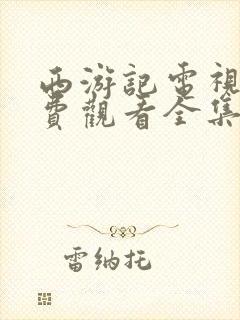 西游記電視
費觀看全集
雷纳托